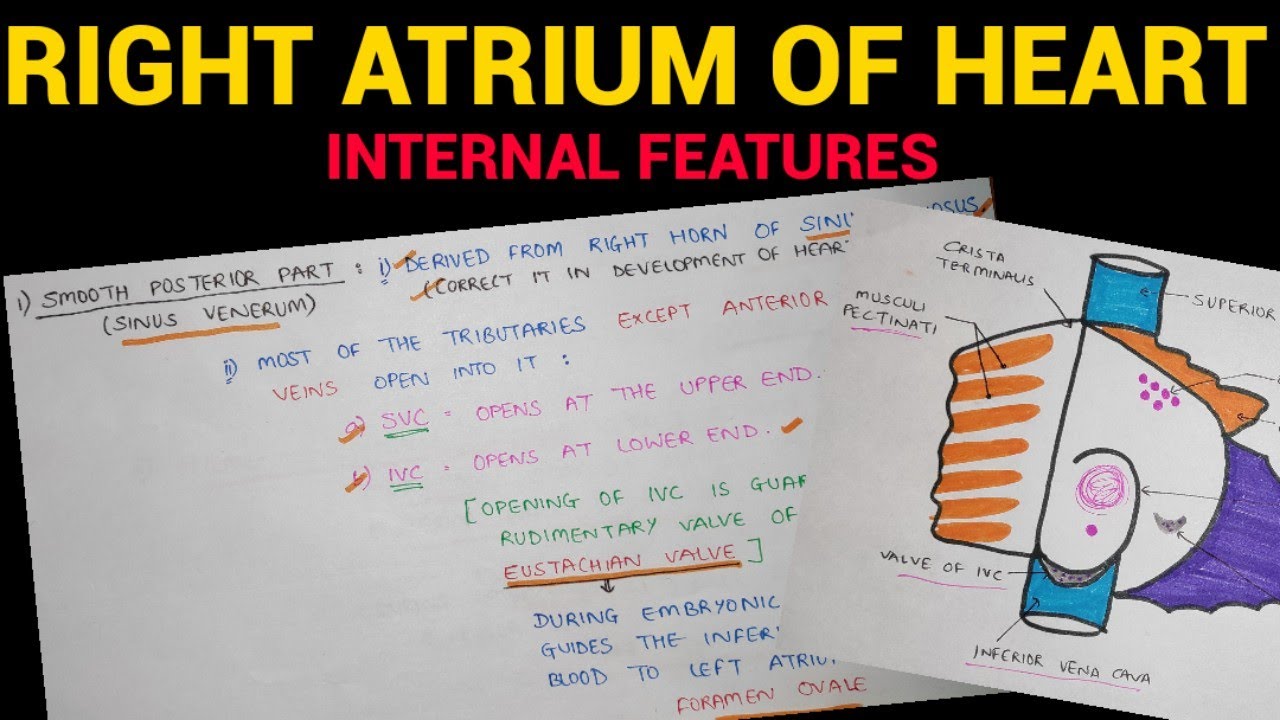 RIGHT ATRIUM OF HEART
INTERNAL FEATURES
1) SMOOTH POSTERIOR PART : i) DERIVED FROM RIGHT HORN OF
(SINUS VENERUM)
(CORRECT IT IN DEVELOPMENT OF
ii) MOST OF THE TRIBUTARIES EXCEPT ANTERIOR
VEINS OPEN INTO IT :
a) SVC = OPENS AT THE UPPER END.
b) IVC = OPENS AT LOWER END.
[OPENING OF IVC IS
RUDIMENTARY VALVE OF
EUSTACHIAN VALVE]
DURING EMBRYONIC
GUIDES THE
BLOOD TO LEFT
FORAMEN OVALE
CRISTA
TERMINALIS
MUSCULI
PECTINATI
SUPERIOR
VALVE OF IVC
INFERIOR VENA CAVA